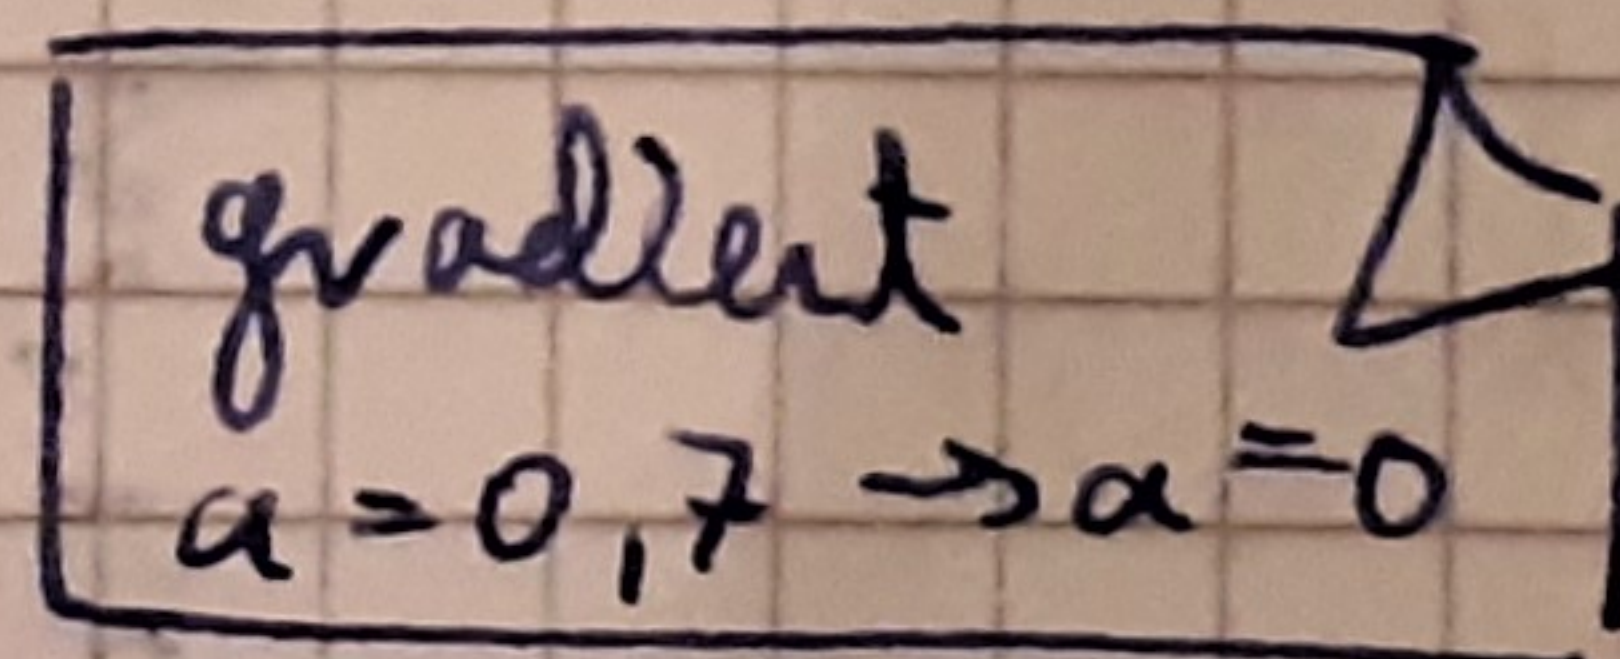 gradient
a = 0,7 → a = 0